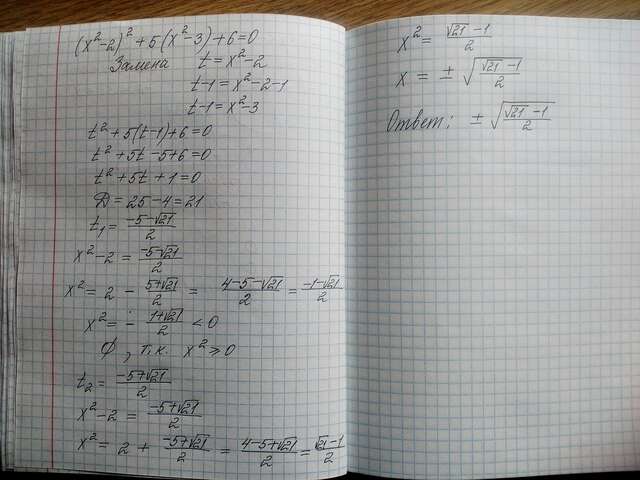 (x²-2)² + 5(x²-3) + 6 = 0
Замена t = x²-2
t-1 = x²-2-1
t-1 = x²-3
t² + 5(t-1) + 6 = 0
t² + 5t - 5 + 6 = 0
t² + 5t + 1 = 0
D = 25 - 4 = 21
t₁ = (-5-√21)/2
x² - 2 = (-5-√21)/2
x² = 2 - (5+√21)/2 = (4-5-√21)/2 = (-1-√21)/2
x² = - (1+√21)/2 < 0
∅, т.к. x² ≥ 0
t₂ = (-5+√21)/2
x² - 2 = (-5+√21)/2
x² = 2 + (-5+√21)/2 = (4-5+√21)/2 = (√21-1)/2
x² = (√21-1)/2
x = ± √((√21-1)/2)
Ответ: ± √((√21-1)/2)